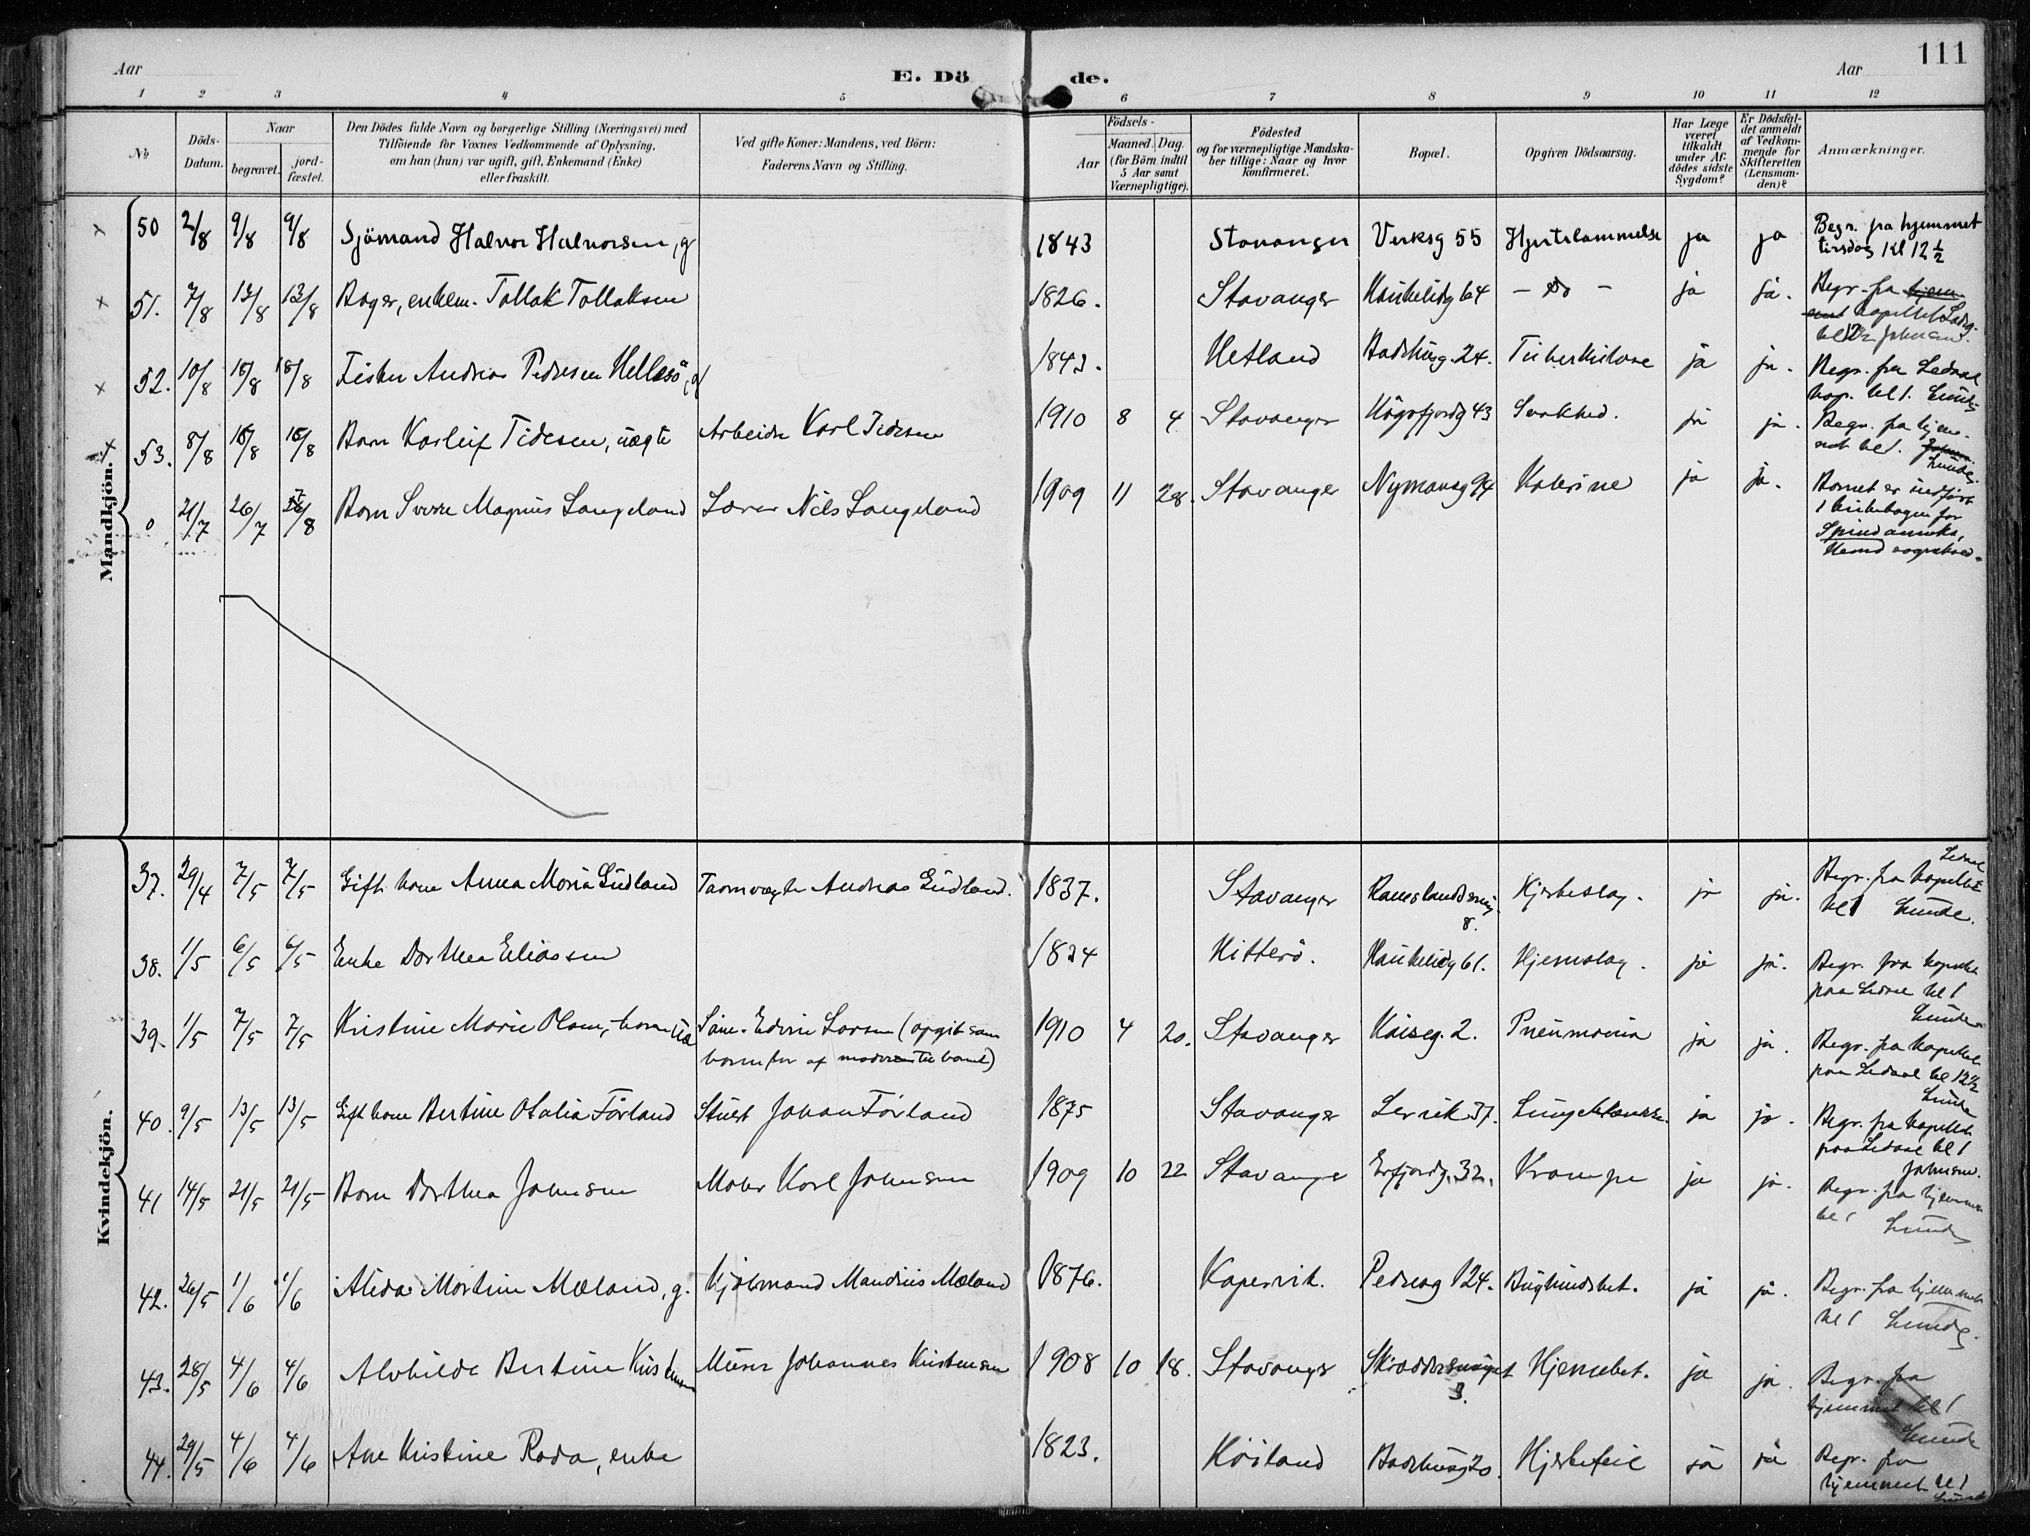 Aar
E. Dö de.
Aar
111
1 2 3 4 5 6 7 8 9 10 11 12
No
Döds-Datum.
Naar
begravet.
jord-fæstet.
Den Dödes fulde Navn og borgerlige Stilling (Næringsvei) med
Tilföiende for Voxnes Vedkommende af Oplysning,
om han (hun) var ugift, gift, Enkemand (Enke)
eller fraskilt.
Ved gifte Koner: Mandens, ved Börn:
Faderens Navn og Stilling.
Födsels-
Aar
Maaned. Dag.
(for Börn indtil
5 Aar samt
Værnepligtige).
Födested
og for værnepligtige Mandska-
ber tillige: Naar og hvor
konfirmeret.
Bopæl.
Opgiven Dödsaarsag.
Har Læge
været
tilkaldt
under Af-
dödes sidste
Sygdom?
Er Dödsfal-
det anmeldt
af Vedkom-
mende for
Skifteretten
(Lensman-
den)?
Anmærkninger.
Mandkjön.
50 2/8 9/8 9/8 Sjömand Halvor Halvorsen, g 1843 Stavanger Verksg 55 Hjertelammelse ja ja Begr. fra hjemmet
tirsdag kl 12 1/2
51. 7/8 13/8 13/8 Bager, enkem. Tollak Tollaksen 1826. Stavanger Haukelidg 64 - Do - ja ja. Begr. fra hjem-
met kapellet
52. 10/8 18/8 18/8 Fisker Andreas Pedersen Hellesö, g 1843. Hetland Badehusg. 24. Tuberkulose ja ja. Begr. fra Ledaal
kap. kl 1. Lunde
53. 8/8 16/8 16/8 Barn Karleif Tidesen, uægte Arbeider Karl Tidesen 1910 8 4 Stavanger Högsfjordg 43 Svakhed. ja ja. Begr. fra hjem-
met kl 1.
Lunde.
0 21/7 26/7 /8 Barn Sverre Magnus Langeland Lærer Nils Langeland 1909 11 28. Stavanger Nymansg 94 Kolerine ja ja. Barnet er indfört
i kirkebogen for
Spind anneks,
Kvindekjön.
37. 29/4 7/5 7/5 Gift kone Anna Maria Gudland Taarnvægter Andreas Gudland. 1837. Stavanger 8. Hjerteslag. ja ja. Ledaal
Begr. fra kapellet
kl 1 Lunde.
38. 1/5 6/5 6/5 Enke Dorthea Eliassen 1834 Hitterö. Haukelidg 61. Hjerneslag. ja ja. Begr. fra kapellet
paa Ledaal kl 1
Lunde
39. 1/5 7/5 7/5 Kristine Marie Olsen, barn uæ Söm. Edvin Larsen (opgit som
barnefar af moderen til barnet) 1910 4 20. Stavanger Kaiseg. 2. Pneumonia ja ja. Begr. fra kapellet
paa Ledaal kl 12 1/2
Lunde
40. 9/5 13/5 13/5 Gift kone Bertine Otalia Förland Stuert Johan Förland 1875 Stavanger Lervik 37. ja ja. Begr. fra kapellet
paa Ledaal kl 1
Johnsen.
41 14/5 21/5 21/5 Barn Dorthea Johnsen Maler Karl Johnsen 1909 10 22 Stavanger Erfjordg. 32. Krampe ja ja. Begr. fra hjemmet
kl 1 Lunde
42. 26/5 1/6 1/6 Alida Martine Mæland, g. Kjöbmand Maudius Mæland 1876. Kopervik. Pedersg 124. Bughindebet. ja ja. Begr. fra hjemmet
kl 1 Lunde.
43. 28/5 4/6 4/6 Alvhilde Bertine Kristensen Murer Johannes Kristensen 1908 10 18. Stavanger 3. Hjernebet. ja ja. Begr. fra
hjemmet kl 1
Lunde
44. 29/5 4/6 4/6 Ane Kristine Roda, enke 1823. Höiland Badehusg 20. Hjertefeil ja ja Begr. fra
hjemmet kl 1
Lunde